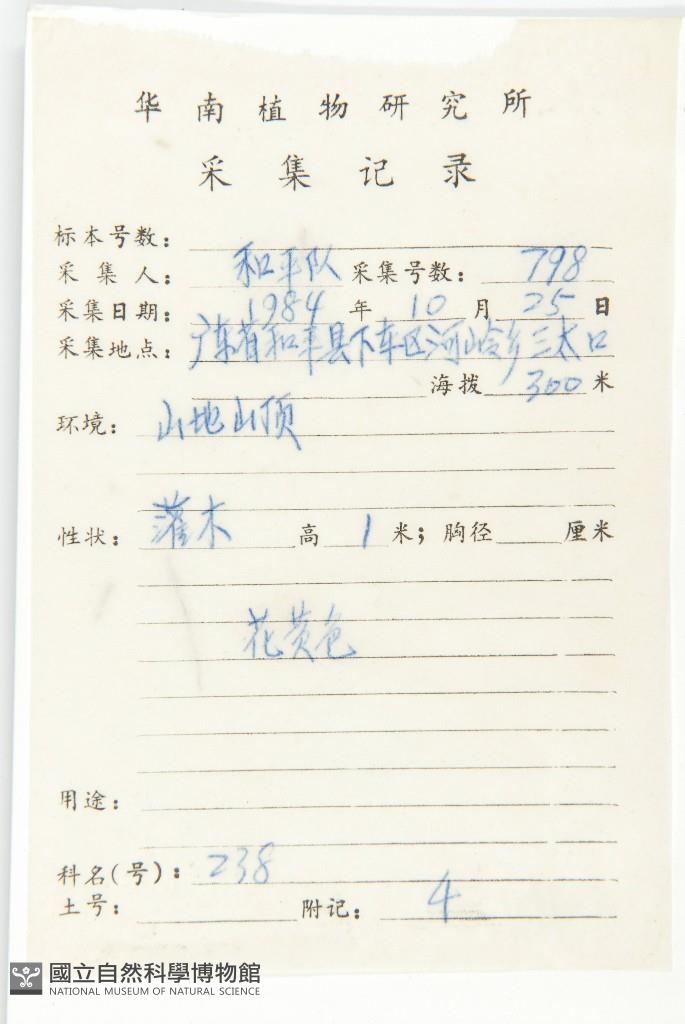 华南植物研究所
采集记录
标本号数：
采集人：和平队 采集号数：798
采集日期：1984年10月25日
采集地点：广东省和平县下车区河岭乡三太口
海拨300米
环境：山地山顶
性状：灌木 高1米；胸径 厘米
花黄色
用途：
科名(号)：238
土号： 附记：4
國立自然科學博物館
NATIONAL MUSEUM OF NATURAL SCIENCE